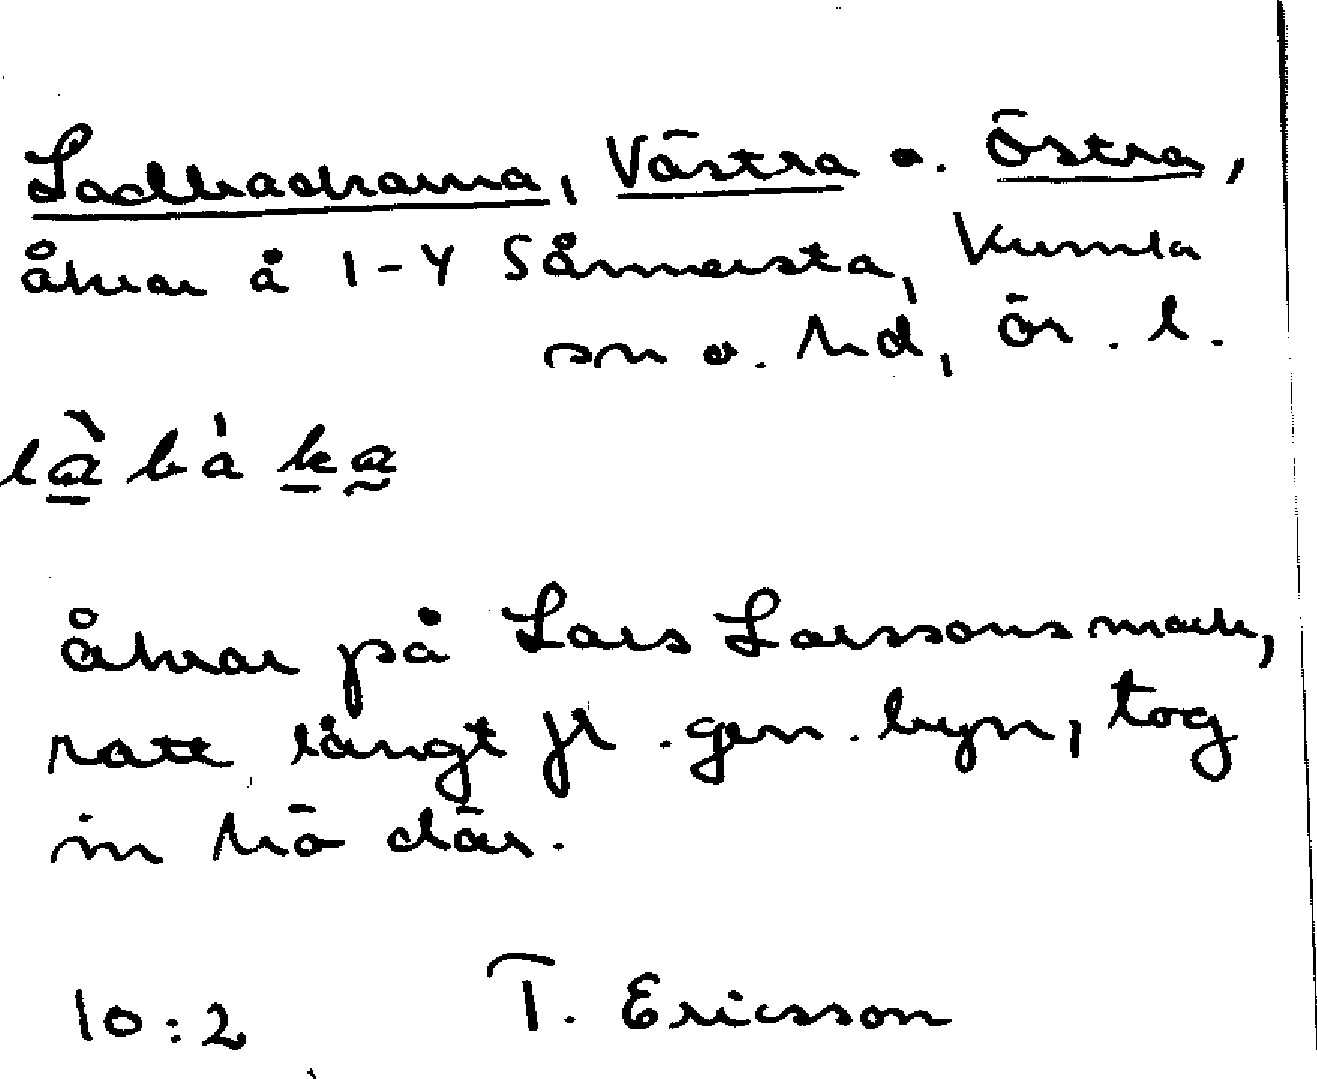 Ladbackarna, Västra o. Östra,
åkrar å 1-4 Sånnersta, Kumla
sn o. hd, Ör. l.
làbàka
åkrar på Lars Larssons mark,
ratt långt fr. gen. byn, tog
in hö där.
10:2 T. Ericsson